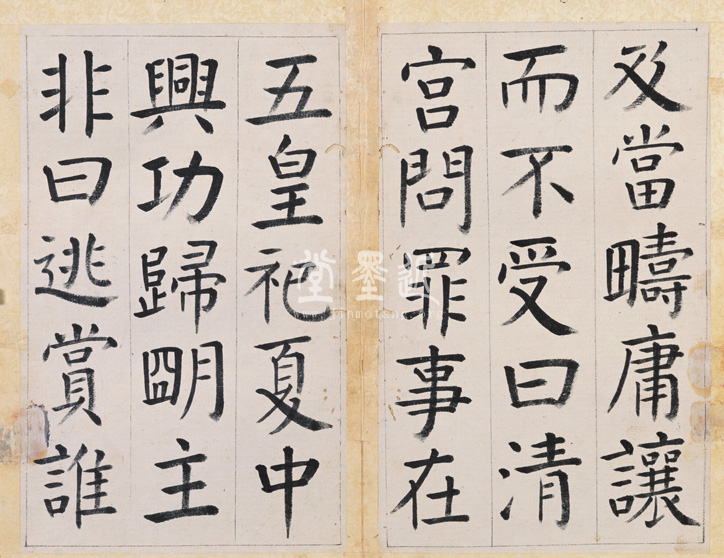 及當疇庸讓
而不受曰清
宮問罪事在
五皇祀夏中
興功歸明主
非曰逃賞誰
近墨堂